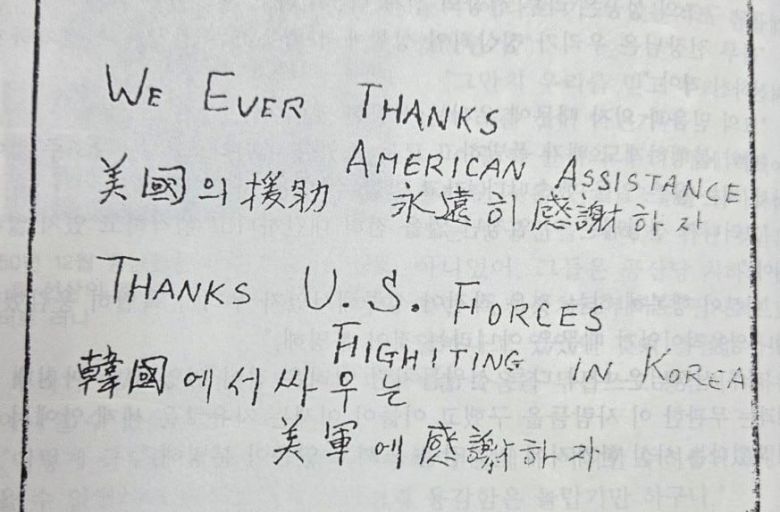 WE EVER THANKS
AMERICAN ASSISTANCE
美國의 援助 永遠히 感謝하자
THANKS U.S. FORCES
FIGHITING IN KOREA
韓國에서 싸우는
美軍에 感謝하자